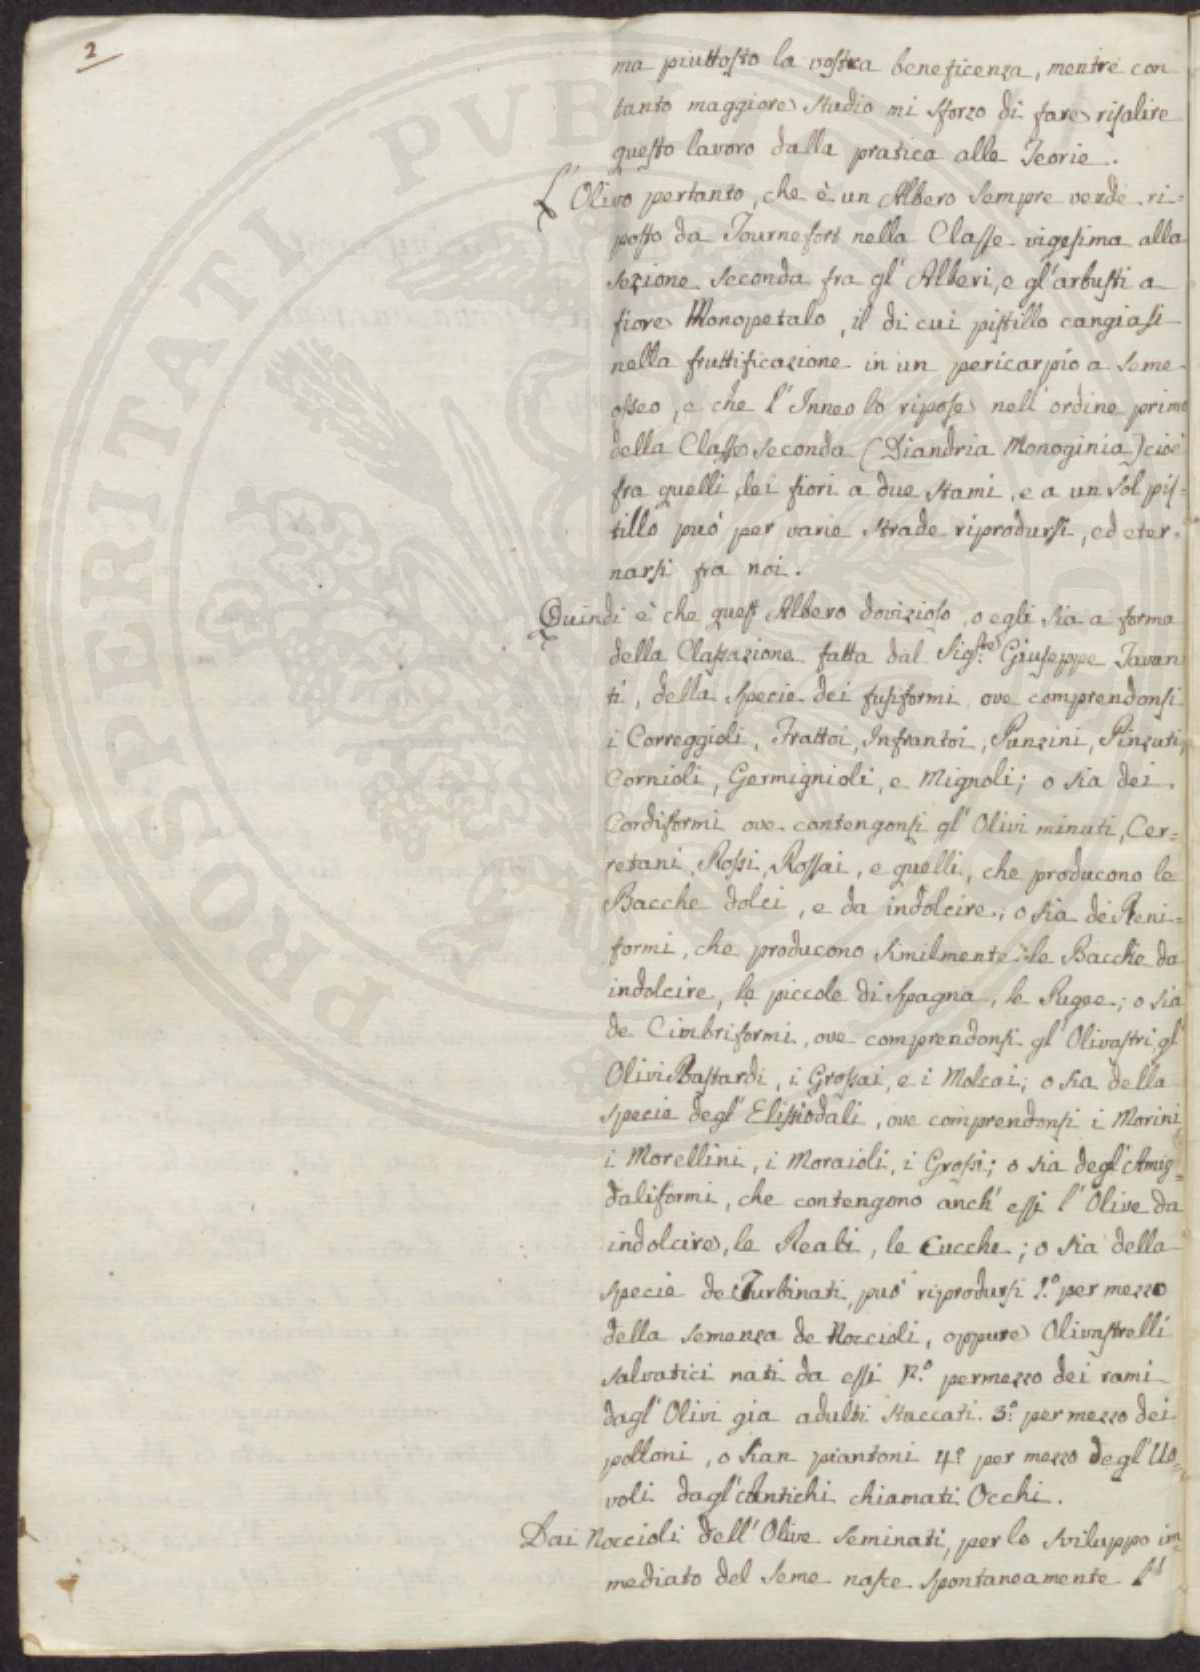 2
ma piuttosto la vostra beneficenza, mentre con
tanto maggiore studio mi sforzo di fare risalire
questo lavoro dalla pratica alle Teorie.
L'Olivo pertanto, che è un Albero sempre verde ri=
posto da Tournefort nella Classe vigesima alla
sezione seconda fra gl'Alberi, e gl'arbusti a
fiore Monopetalo, il di cui pistillo cangiasi
nella fruttificazione in un pericarpio a seme
osseo, e che l'Inneo lo ripose nell'ordine primo
della Classe seconda (Diandria Monoginia) cioè
fra quelli dei fiori a due stami, e a un sol pis=
tillo può per varie strade riprodursi, ed eter=
narsi fra noi.
Quindi è che quest Albero dovizioso, o egli sia a forma
della Classazione fatta dal Sig.re Giuseppe Tavan
ti, della specie dei fusiformi ove comprendonsi
i Correggioli, Frattoi, Infrantoi, Punzini, Pinzuti,
Cornioli, Germignioli, e Mignoli; o sia dei
Cordiformi ove contengonsi gl'Olivi minuti, Cer=
retani, Rossi, Rossai, e quelli, che producono le
Bacche dolci, e da indolcire; o sia dei Reni=
formi, che producono similmente le Bacche da
indolcire, le piccole di Spagna, le Pugee; o sia
de Cimbriformi, ove comprendonsi gl'Olivastri, gl'
Olivi Bastardi, i Grossai, e i Molcai; o sia della
specie degl'Elissiodali, ove comprendonsi i Morini,
i Morellini, i Moraioli, i Grossi; o sia degl'Amig=
daliformi, che contengono anch'essi l'Olive da
indolcire, le Reali, le Cucche; o sia della
specie de Turbinati, può riprodursi 1.º per mezzo
della semenza de Noccioli, oppure Olivastrelli
salvatici nati da essi 2.º per mezzo dei rami
dagl'Olivi gia adulti staccati. 3.º per mezzo dei
polloni, o sian piantoni 4.º per mezzo degl'Uo=
voli dagl'Antichi chiamati Occhi.
Dai Noccioli dell'Olive seminati, per lo sviluppo im=
mediato del seme nasce spontaneamente l'
PROSPERITATI PUBL